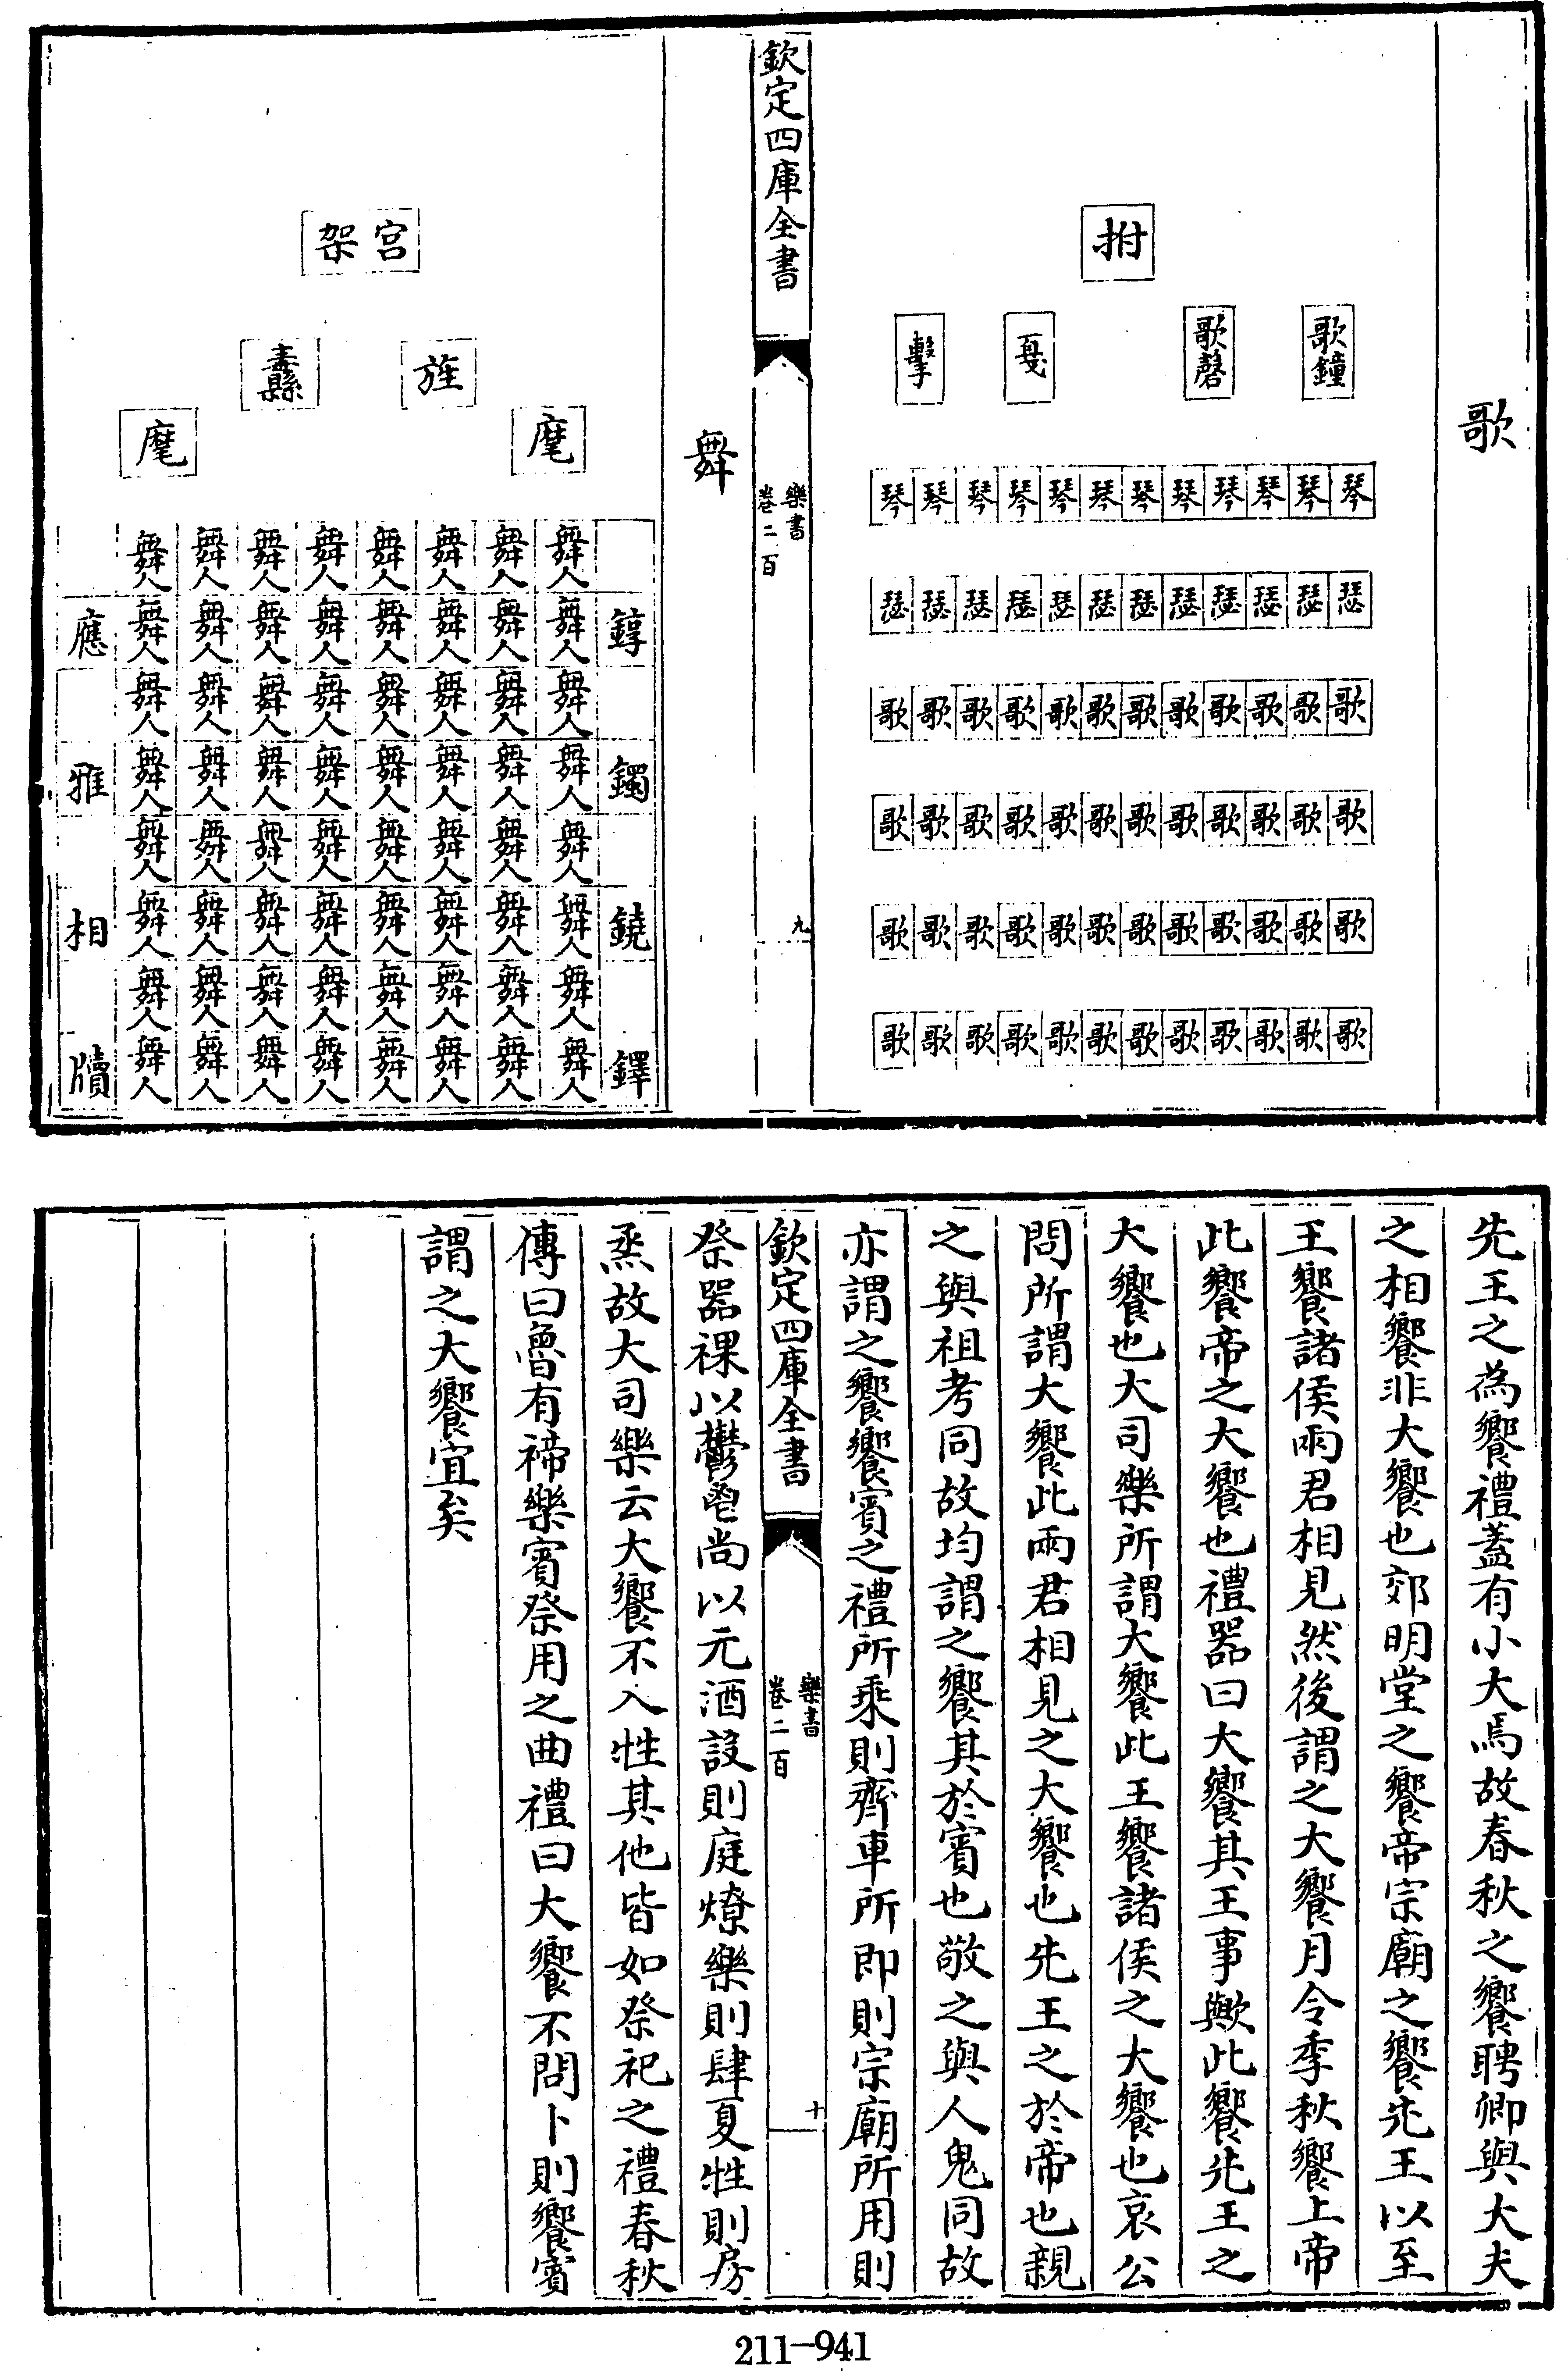 歌
拊
歌鐘 歌磬 戛 擊
琴琴琴琴琴琴琴琴琴琴琴琴
瑟瑟瑟瑟瑟瑟瑟瑟瑟瑟瑟瑟
歌歌歌歌歌歌歌歌歌歌歌歌
歌歌歌歌歌歌歌歌歌歌歌歌
歌歌歌歌歌歌歌歌歌歌歌歌
歌歌歌歌歌歌歌歌歌歌歌歌
欽定四庫全書
樂書
卷二百
九
舞
宫架
旌 纛
麾 麾
舞人 舞人 舞人 舞人 舞人 舞人 舞人 舞人
錞 舞人 舞人 舞人 舞人 舞人 舞人 舞人 舞人 應
舞人 舞人 舞人 舞人 舞人 舞人 舞人 舞人
鐲 舞人 舞人 舞人 舞人 舞人 舞人 舞人 舞人 雅
舞人 舞人 舞人 舞人 舞人 舞人 舞人 舞人
鐃 舞人 舞人 舞人 舞人 舞人 舞人 舞人 舞人 相
舞人 舞人 舞人 舞人 舞人 舞人 舞人 舞人
鐸 舞人 舞人 舞人 舞人 舞人 舞人 舞人 舞人 牘
先王之為饗禮蓋有小大焉故春秋之饗聘卿與大夫
之相饗非大饗也郊明堂之饗帝宗廟之饗先王以至
王饗諸侯兩君相見然後謂之大饗月令季秋饗上帝
此饗帝之大饗也禮器曰大饗其王事歟此饗先王之
大饗也大司樂所謂大饗此王饗諸侯之大饗也哀公
問所謂大饗此兩君相見之大饗也先王之於帝也親
之與祖考同故均謂之饗其於賓也敬之與人鬼同故
亦謂之饗饗賓之禮所乘則齊車所即則宗廟所用則
欽定四庫全書
樂書
卷二百
十
祭器祼以鬱鬯尚以元酒設則庭燎樂則肆夏牲則房
烝故大司樂云大饗不入牲其他皆如祭祀之禮春秋
傳曰魯有禘樂賓祭用之曲禮曰大饗不問卜則饗賓
謂之大饗宜矣
211-941